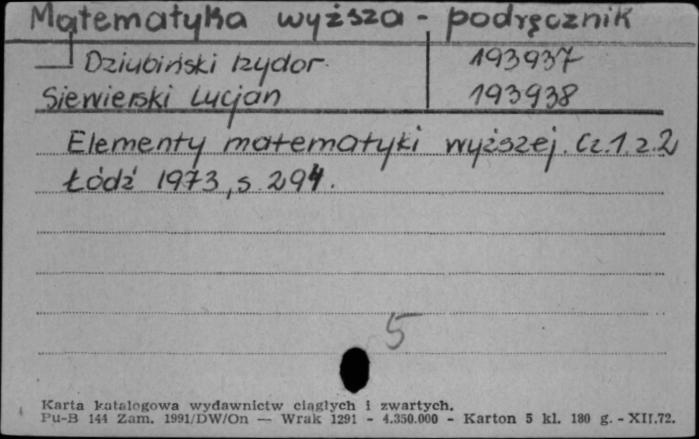 Matematyka wyższa - podręcznik
Dziubiński Izydor 193937
Siewierski Lucjan 193938
Elementy matematyki wyższej. Cz. 1. z. 2
Łódź 1973, s. 294.
5
Karta katalogowa wydawnictw ciągłych i zwartych.
Pu-B 144 Zam. 1991/DW/On — Wrak 1291 - 4.350.000 - Karton 5 kl. 180 g. - XII.72.